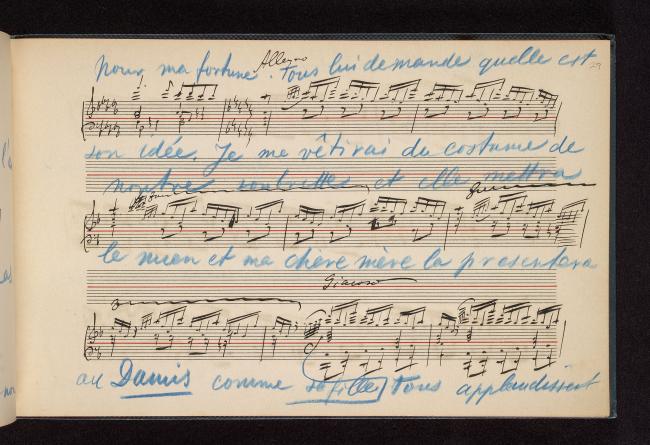 pour ma fortune. Tous lui demande quelle est
Allegro
29
son idée. Je me vêtirai du costume de
et elle mettra
le mien et ma chère mère la presentera
Giocoso
au Damis comme sa fille, Tous applaudissent